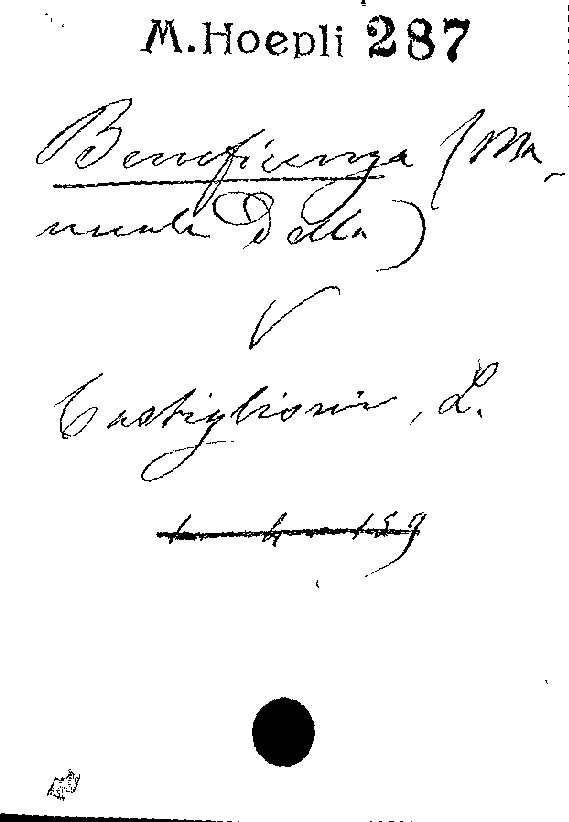 M. Hoepli 287
Beneficenza (Ma-
nuale Della)
V
Castiglioni, L.
1 4 159